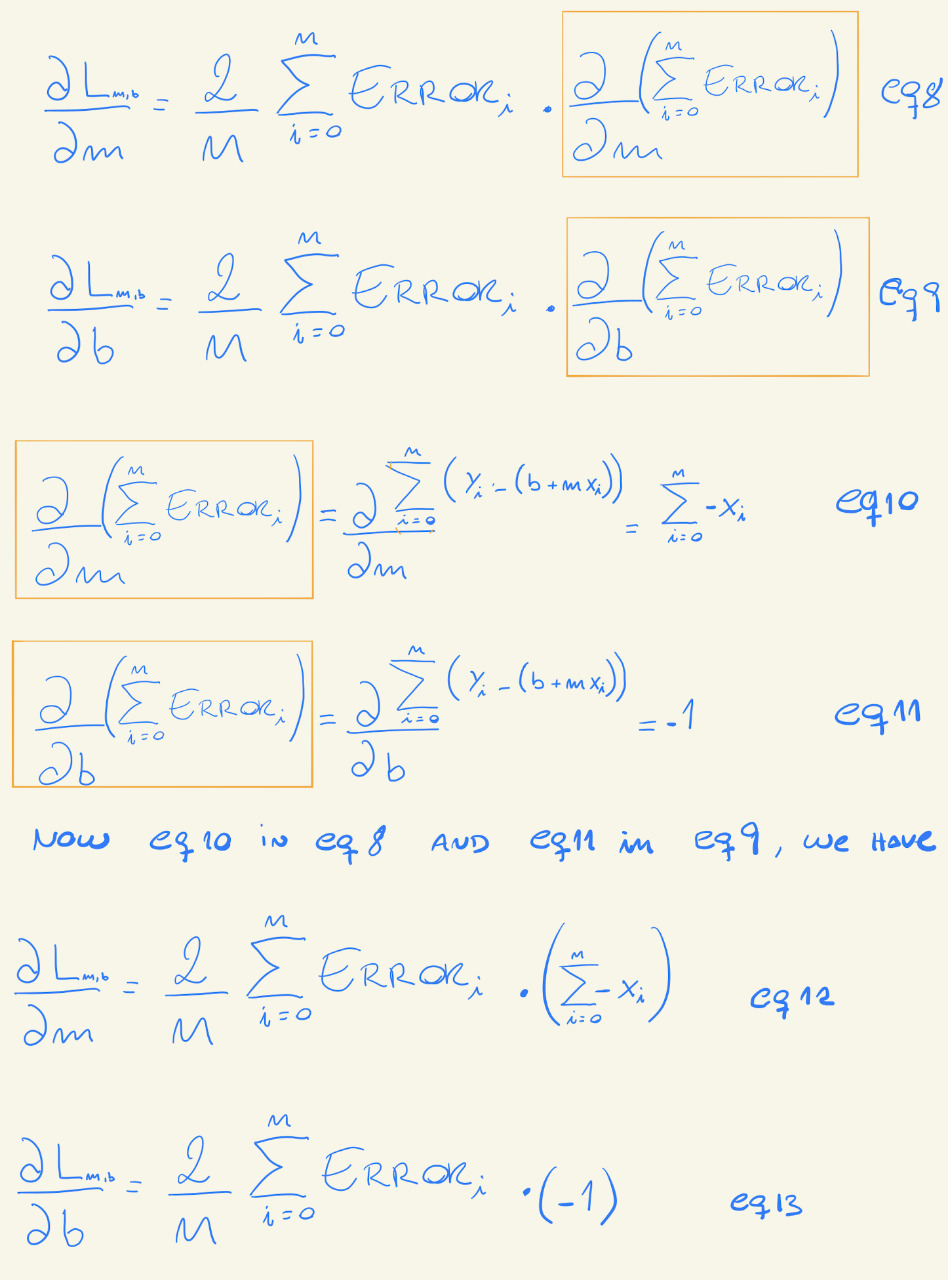 ∂L_{m,b}/∂m = 2/n ∑_{i=0}^{n} ERROR_i · ∂/∂m (∑_{i=0}^{n} ERROR_i) eq8
∂L_{m,b}/∂b = 2/n ∑_{i=0}^{n} ERROR_i · ∂/∂b (∑_{i=0}^{n} ERROR_i) eq9
∂/∂m (∑_{i=0}^{n} ERROR_i) = ∂ ∑_{i=0}^{n} (y_i - (b + m x_i)) / ∂m = ∑_{i=0}^{n} -x_i eq10
∂/∂b (∑_{i=0}^{n} ERROR_i) = ∂ ∑_{i=0}^{n} (y_i - (b + m x_i)) / ∂b = -1 eq11
NOW eq10 in eq8 AND eq11 in eq9, we HAVE
∂L_{m,b}/∂m = 2/n ∑_{i=0}^{n} ERROR_i · (∑_{i=0}^{n} -x_i) eq12
∂L_{m,b}/∂b = 2/n ∑_{i=0}^{n} ERROR_i · (-1) eq13